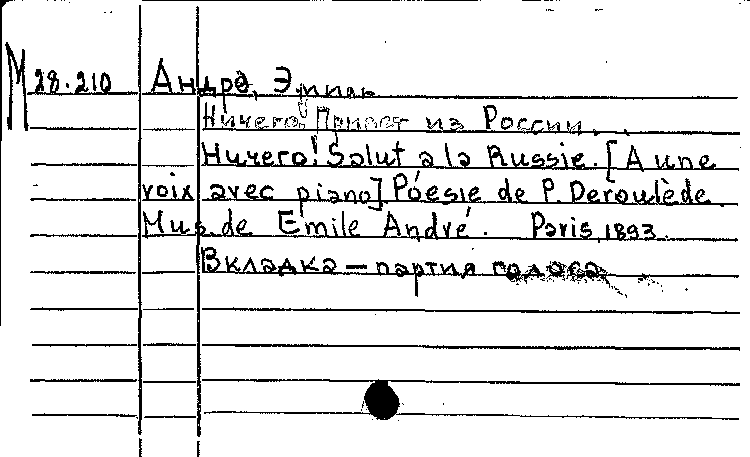 М 28.210 Андрэ, Эмиль
Ничего! Привет из России.
Ничего! Salut a la Russie. [A une
voix avec piano] Poesie de P. Deroulède.
Mus. de Emile André. Paris, 1893.
Вкладка – партия голоса